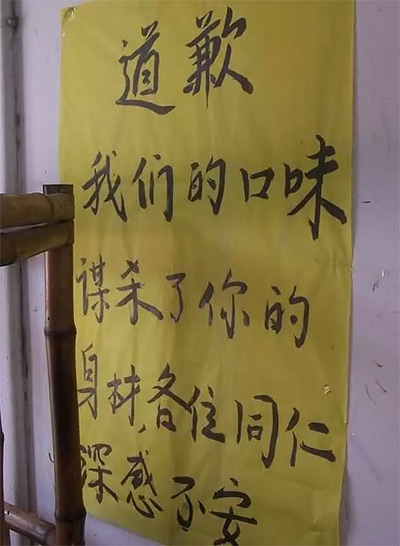 道歉
我们的口味
谋杀了你的
身材,各位同仁
深感不安